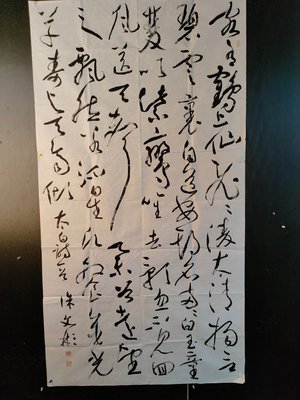 客有鶴上仙飛飛凌太清揚言
碧雲裏自道安期名兩兩白玉童
雙吹紫鸞笙去影忽不見回
風送天聲舉首遠望
之飄然若流星願餐金光
草壽與天齊傾 太白詩 文彬